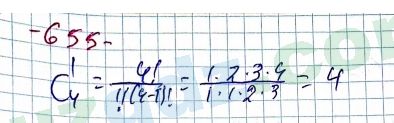 -655-
C₄¹ = 4!/1!(4-1)! = 1·2·3·4/1·1·2·3 = 4